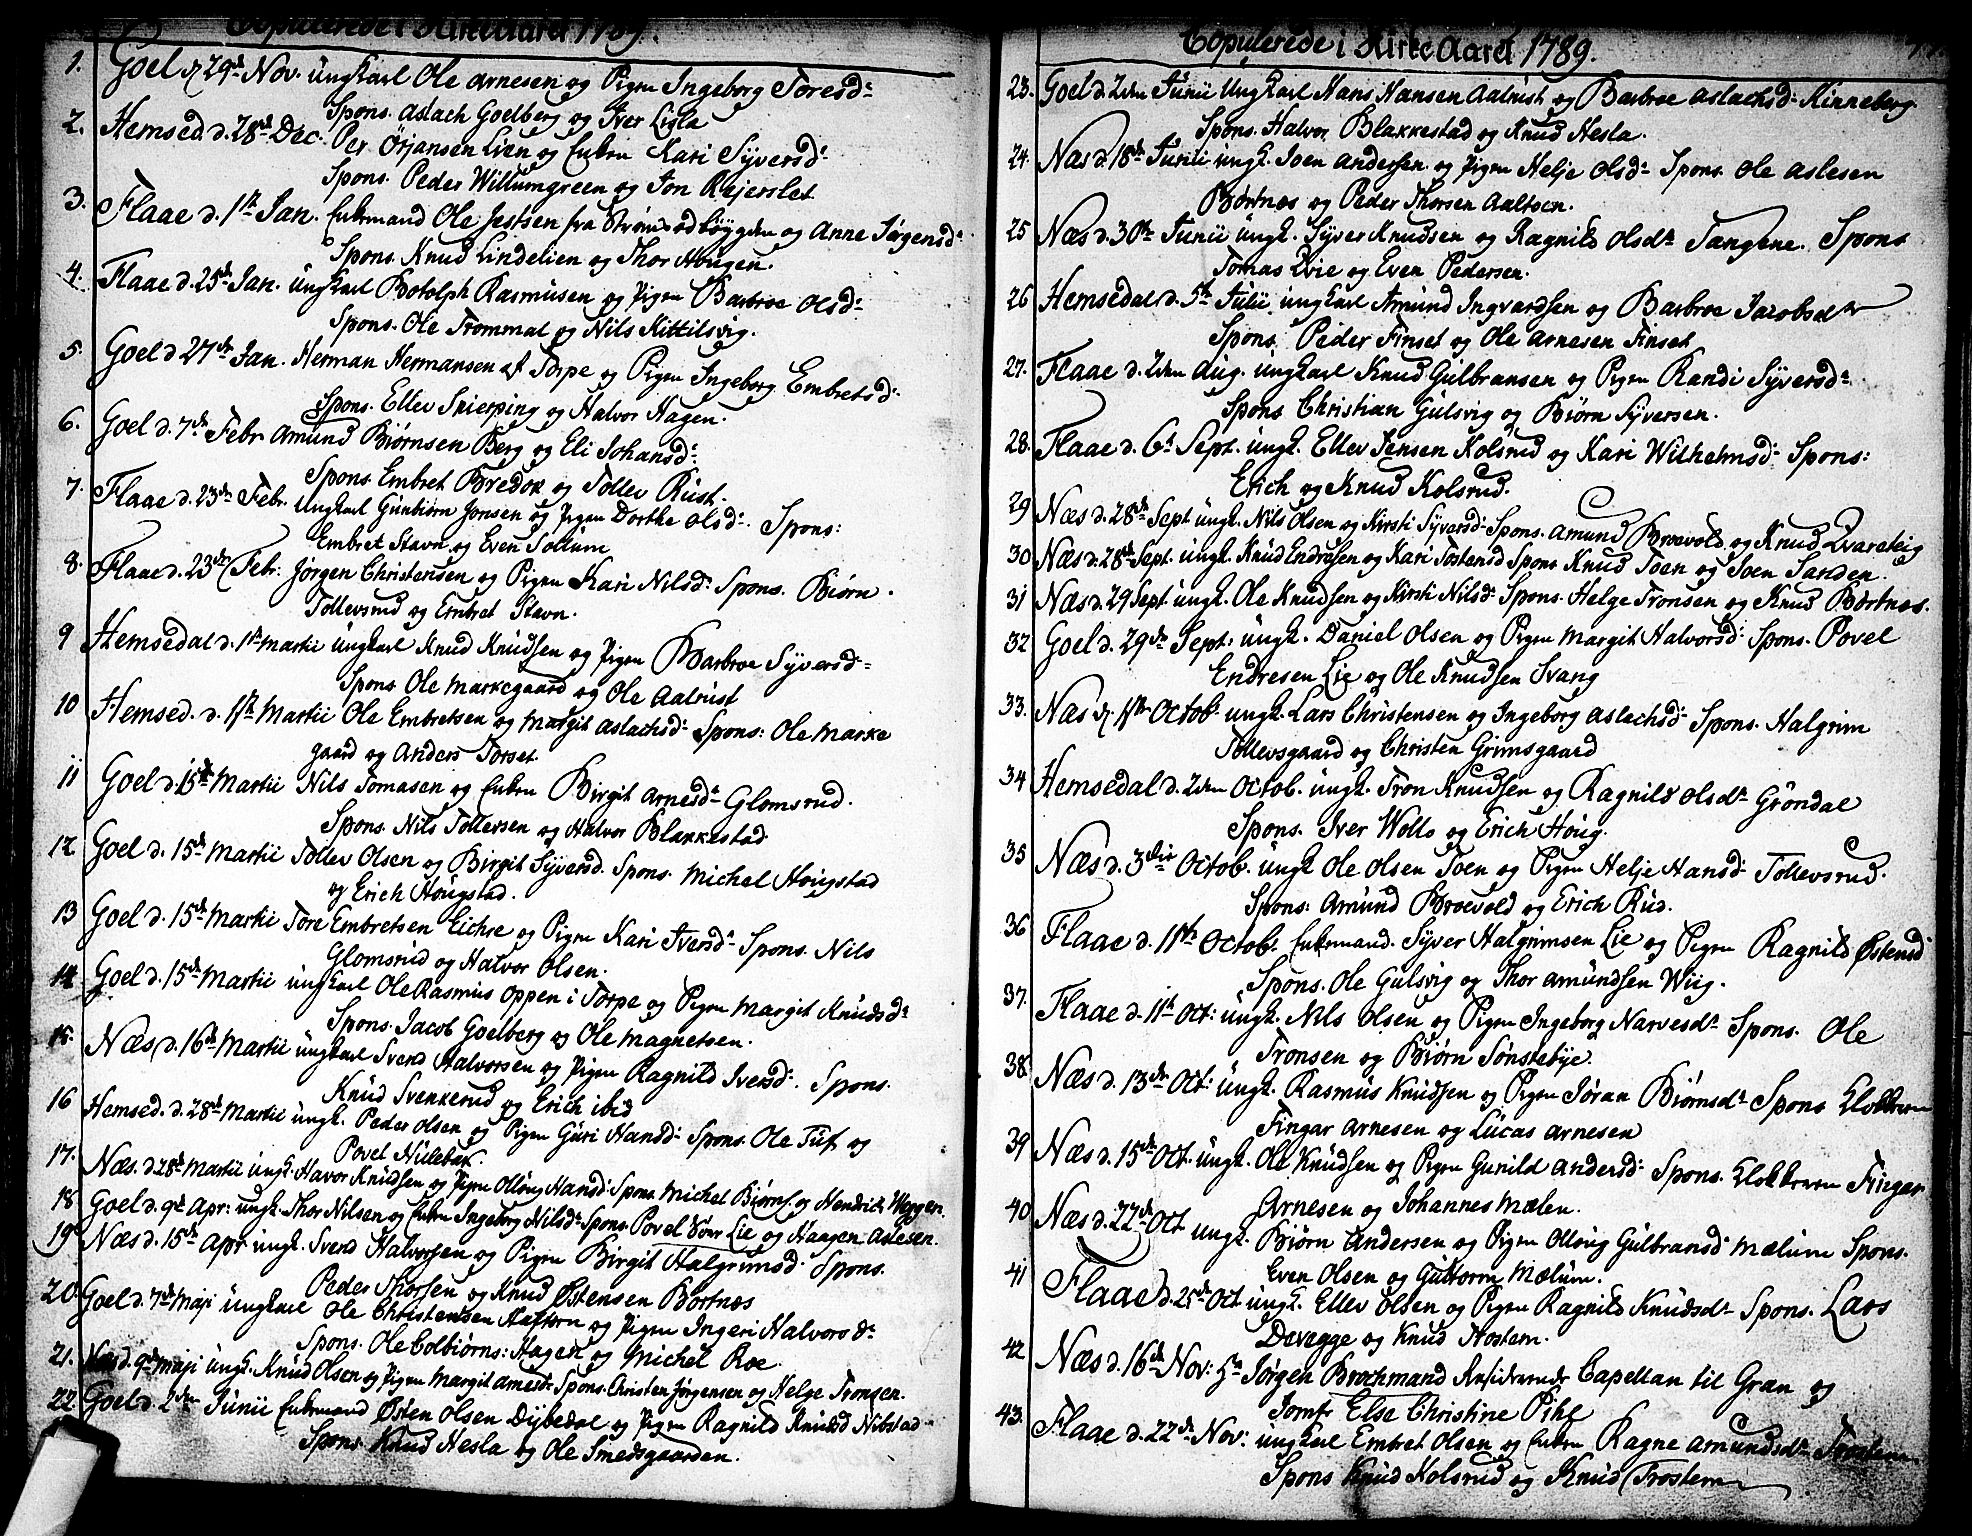 Copulerede i KirkeAaret 1789.
1. Goel d. 29de Nov. ungkarl Ole Arnesen og Pigen Ingeborg Toresd:
Spons. Aslach Goelberg og Iver Lisla
2. Hemsed d. 28de Dec. Per Örjansen Lien og Enken Kari Syversd:
Spons. Peder Willumgreen og Jon Kejerslet
3. Flaae d. 1te Jan. Enkemand Ole Jestsen fra Strömsodböygden og Anne Jörgensd:
Spons. Knud Lindelien og Thor Hougen.
4. Flaae d. 25de Jan. ungkarl Botolph Rasmusen og Pigen Barbroe Olsd:
Spons. Ole Trommal og Nils Kittilsvig.
5. Goel d 27de Jan. Herman Hermansen af Torpe og Pigen Ingeborg Embretsd:
Spons. Ellev Skierping og Halvor Hagen.
6. Goel d. 7de Febr. Amund Biörnsen Berg og Eli Johansd:
Spons Embret Bredok og Tollev Rust.
7. Flaae d. 23de Febr. Ungkarl Gunbiörn Jonsen og Pigen Dorthe Olsd: Spons:
Embret Stavn og Even Sollum
8. Flaae d. 23de Febr. Jörgen Christensen og Pigen Kari Nilsd: Spons. Biörn
Tollevsrud og Embret Stavn.
9 Hemsedal d. 1te Martii ungkarl Knud Knudsen og Pigen Barbroe Syversd:
Spons Ole Markegaard og Ole Aalrust
10 Hemsed. d. 1te Martii Ole Embretsen og Margit Aslachsd: Spons: Ole Marke
gaard og Anders Torset.
11 Goel d. 15de Martii Nils Tomasen og Enken Birgit Arnesd: Glomsrud.
Spons. Nils Tollevsen og Halvor Blakkestad
12 Goel d. 15de Martii Tollev Olsen og Birgit Syversd. Spons. Michel Hougstad
og Erich Hougstad.
13 Goel d. 15de Martii Tore Embretsen Eichre og Pigen Kari Iversd: Spons. Nils
Glomsrud og Halvor Olsen.
14 Goel d. 15de Martii ungkarl Ole Rasmus Oppen i Torpe og Pigen Margit Knudsd:
Spons. Jacob Goelberg og Ole Magnetsen.
15. Næs d. 16de Martii ungkarl Svend Halvorsen og Pigen Ragnild Iversd: Spons.
Knud Svenkerud og Erich ibid
16 Hemsed. d. 28de Martii ungk. Peder Olsen og Pigen Guri Hansd: Spons. Ole Tuf og
Povel Hulebak.
17. Næs. d. 28de Martii ungk. Havor Knudsen og Pigen Ollöug Hansd: Spons. Michel Biörns. og Hendrick Meggen.
18 Goel d. 9de Apr: ungk. Thor Nilsen og Enken Ingeborg Nilsd: Spons. Povel Sönr Lie og Haagen Aslesen.
19 Næs d. 15de Apr ungk. Svend Halvorsen og Pigen Birgit Halgrimsd. Spons.
Peder Thorsen og Knud Östensen Bortnes
20. Goel d. 7de Maji ungkarl Ole Christensen Haftorn og Pigen Ingeri Halvorsd:
Spons. Ole Colbiörns: Hagen og Michel Roe.
21. Næs d. 9de Maji ungk. Knud Olsen og Pigen Margit Arnesd: Spons. Christen Jörgensen og Helge Tronsen.
22. Goel d. 2den Junii Enkemand Östen Olsen Dybedal og Pigen Ragnild Knudsd Nibstad
Spons. Knud Hesla og Ole Smedsgaarden.
Copulerede i KirkeAaret 1789.
23. Goel d. 2den Junii Ungkarl Hans Hansen Aalrust og Barbroe Aslachsd: Kinneberg.
Spons. Halvor Blakkestad og Knud Hesla.
24. Næs d. 18de Junii ungk. Joen Andersen og Pigen Helje Olsd: Spons. Ole Aslesen
Börtnes og Peder Thorsen Aaltoen.
25 Næs d. 30te Junii ungk. Syver Knudsen og Ragnild Olsdr Tangene. Spons
Tomas Qvie og Even Pedersen.
26 Hemsedal d. 5te Julii ungkarl Amund Ingvardsen og Barbroe Jacobsdr
Spons Peder Finset og Ole Arnesen Finset
27. Flaae d. 2den Aug. ungkarl Knud Gulbransen og Pigen Randi Syversd:
Spons Christian Gulsvig og Biörn Syversen.
28. Flaae d. 6te Sept. ungk. Ellev Jensen Kolsrud og Kari Wilhelmsd: Spons:
Erich og Knud Kolsrud.
29 Næs d. 28de Sept ungk. Nils Olsen og Kirsti Syversd: Spons. Amund Broevold og Knud Qvareteig
30 Næs d. 28de Sept. ungk. Knud Endresen og Kari Tostensd Spons Knud Toen og Joen Sanden.
31 Næs d. 29 Sept ungk. Ole Knudsen og Kirsti Nilsd: Spons. Helge Tronsen og Knud Börtnes.
32 Goel d. 29de Sept: ungk. Daniel Olsen og Pigen Margit Halvorsd: Spons. Povel
Endresen Lie og Ole Knudsen Svang
33. Næs d. 1te Octob. ungk. Lars Christensen og Ingeborg Aslachsd: Spons. Halgrim
Tollevsgaard og Christen Grimsgaard
34 Hemsedal d. 2den Octob. ungk. Tron Knudsen og Ragnild Olsdr Gröndal
Spons. Iver Wollo og Erich Houg.
35 Næs d. 3die Octob. ungk Ole Olsen Toen og Pigen Helje Hansd: Tollevsrud.
Spons: Amund Broevold og Erich Rud.
36 Flaae d. 11te Octob. Enkemand. Syver Halgrimsen Lie og Pigen Ragnild Östensd
Spons. Ole Gulsvig og Thor Amundsen Wiig.
37. Flaae d. 11te Oct: ungk. Nils Olsen og Pigen Ingeborg Narvesdr Spons. Ole
Tronsen og Biörn Sönstebye.
38 Næs d. 13de Oct: ungk. Rasmus Knudsen og Pigen Jöran Biörnsdr Spons Klokkeren
Fingar Arnesen og Lucas Arnesen
39 Næs d. 15de Oct. ungk. Ole Knudsen og Pigen Gunild Andersd: Spons. Klokkeren Fingar
Arnesen og Johannes Mælen.
40 Næs d. 22de Oct ungk. Biörn Andersen og Pigen Ollöug Gulbransd Mælum Spons.
Even Olsen og Guttorm Mælum.
41 Flaae d. 25de Oct ungk. Ellev Olsen og Pigen Ragnild Knudsdr Spons. Lars
Devegge og Knud Trostem.
42 Næs d. 16de Nov: Hr Jörgen Brochmand Residerende Capellan til Gran og
Jomfr Else Christine Pihl
43. Flaae d. 22de Nov: ungkarl Embret Olsen og Enken Ragne Amundsdr Trostem
Spons Knud Kolsrud og Knud Trostem